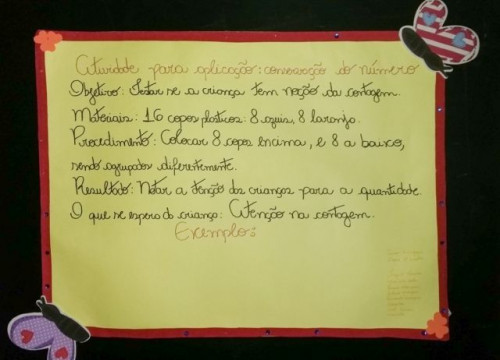 Atividade para aplicação: conservação do número
Objetivo: Testar se a criança tem noção da contagem.
Materiais: 16 copos plásticos: 8 azuis, 8 laranja.
Procedimento: Colocar 8 copos encima, e 8 a baixo,
sendo agrupados diferentemente.
Resultado: Notar a tenção das crianças para a quantidade.
O que se espera da criança: Atenção na contagem.
Exemplo: